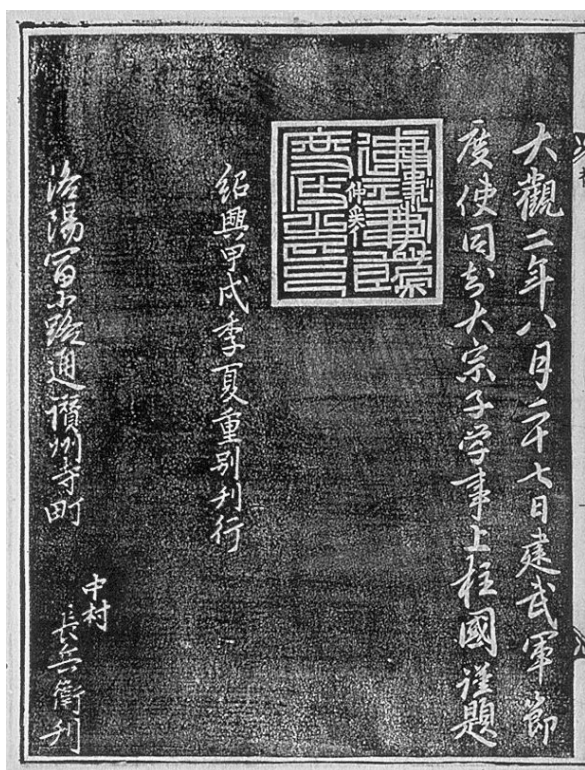 大觀二年八月二十七日建武軍節
度使同知大宗子学事上柱國謹題
紹興甲戌季夏重別刊行
洛陽冨小路通讃州寺町
中村
長兵衛刋